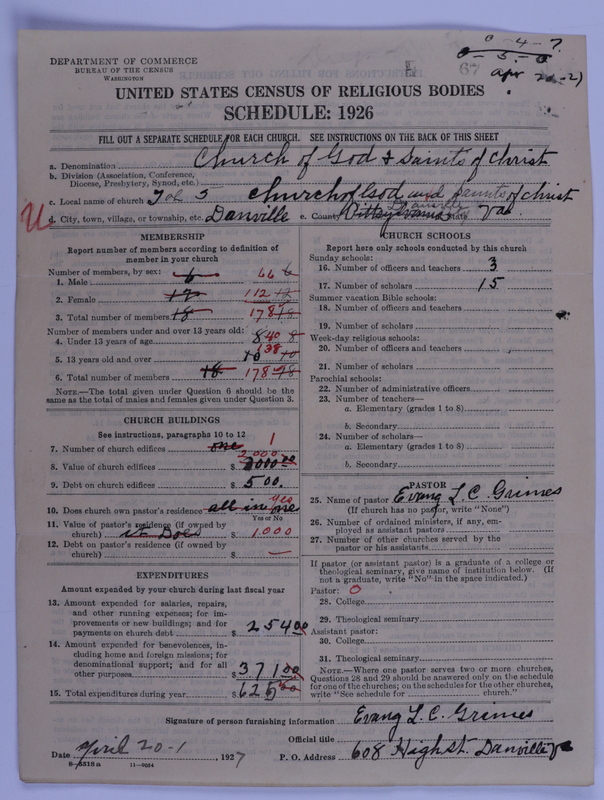 0-4-7
0-5-0
67
apr 20-27
DEPARTMENT OF COMMERCE
BUREAU OF THE CENSUS
WASHINGTON
UNITED STATES CENSUS OF RELIGIOUS BODIES
SCHEDULE: 1926
FILL OUT A SEPARATE SCHEDULE FOR EACH CHURCH. SEE INSTRUCTIONS ON THE BACK OF THIS SHEET
a. Denomination Church of God & Saints of Christ
b. Division (Association, Conference,
Diocese, Presbytery, Synod, etc.)
c. Local name of church Church of God and Saints of Christ
d. City, town, village, or township, etc. Danville e. County Pittsylvania State Va
MEMBERSHIP
Report number of members according to definition of
member in your church
Number of members, by sex:
1. Male 6 66 6
2. Female 12 112 12
3. Total number of members 18 178 18
Number of members under and over 13 years old:
4. Under 13 years of age 8 40 8
5. 13 years old and over 10 138 10
6. Total number of members 18 178 18
NOTE.—The total given under Question 6 should be the
same as the total of males and females given under Question 3.
CHURCH BUILDINGS
See instructions, paragraphs 10 to 12
7. Number of church edifices one 1
8. Value of church edifices $ 2,000
9. Debt on church edifices $ 500.
10. Does church own pastor's residence all in one yes
Yes or No
11. Value of pastor's residence (if owned by
church) it Does $ 1,000
12. Debt on pastor's residence (if owned by
church) $ —
EXPENDITURES
Amount expended by your church during last fiscal year
13. Amount expended for salaries, repairs,
and other running expenses; for im-
provements or new buildings; and for
payments on church debt $ 254 00
14. Amount expended for benevolences, in-
cluding home and foreign missions; for
denominational support; and for all
other purposes $ 371 00
15. Total expenditures during year $ 625 00
CHURCH SCHOOLS
Report here only schools conducted by this church
Sunday schools:
16. Number of officers and teachers 3
17. Number of scholars 15
Summer vacation Bible schools:
18. Number of officers and teachers
19. Number of scholars
Week-day religious schools:
20. Number of officers and teachers
21. Number of scholars
Parochial schools:
22. Number of administrative officers
23. Number of teachers—
a. Elementary (grades 1 to 8)
b. Secondary
24. Number of scholars—
a. Elementary (grades 1 to 8)
b. Secondary
PASTOR
25. Name of pastor Evang L. C. Grimes
(If church has no pastor, write "None")
26. Number of ordained ministers, if any, em-
ployed as assistant pastors
27. Number of other churches served by the
pastor or his assistants
If pastor (or assistant pastor) is a graduate of a college or
theological seminary, give name of institution below. (If
not a graduate, write "No" in the space indicated.)
Pastor: 0
28. College
29. Theological seminary
Assistant pastor:
30. College
31. Theological seminary
NOTE.—Where one pastor serves two or more churches,
Questions 28 and 29 should be answered only on the schedule
for one of the churches; on the schedules for the other churches,
write "See schedule for church."
Signature of person furnishing information Evang L. C. Grimes
Official title
Date April 20-1, 1927 P. O. Address 608 High St. Danville Va
8-5318a 11-9094